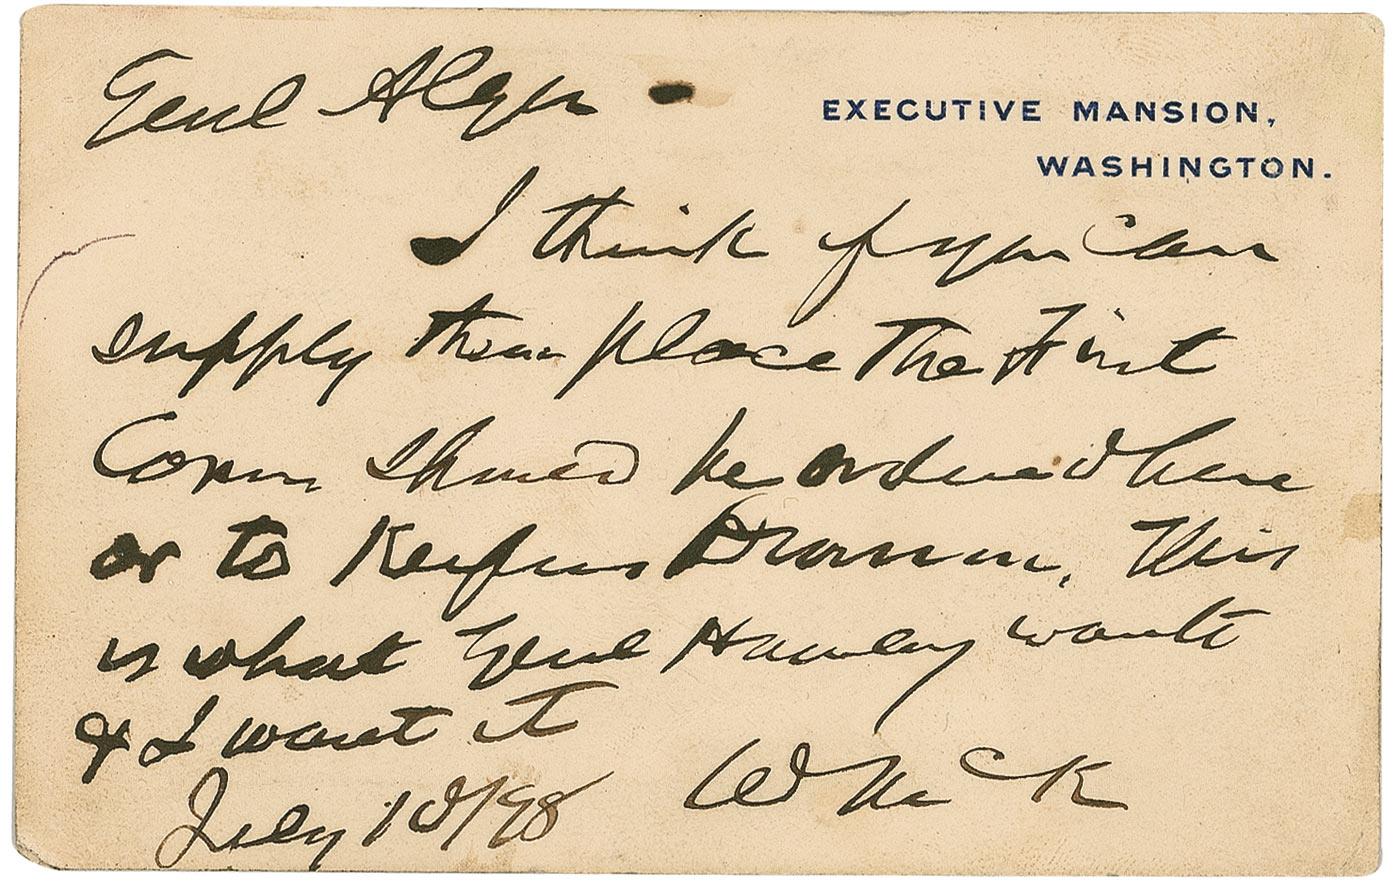 Genl Alger
EXECUTIVE MANSION,
WASHINGTON.
I think if you can
supply their place the First
Conn should be ordered here
or to Niagara
or to
This
is what Genl Hawley wants
& I want it
July 10/98
W McK